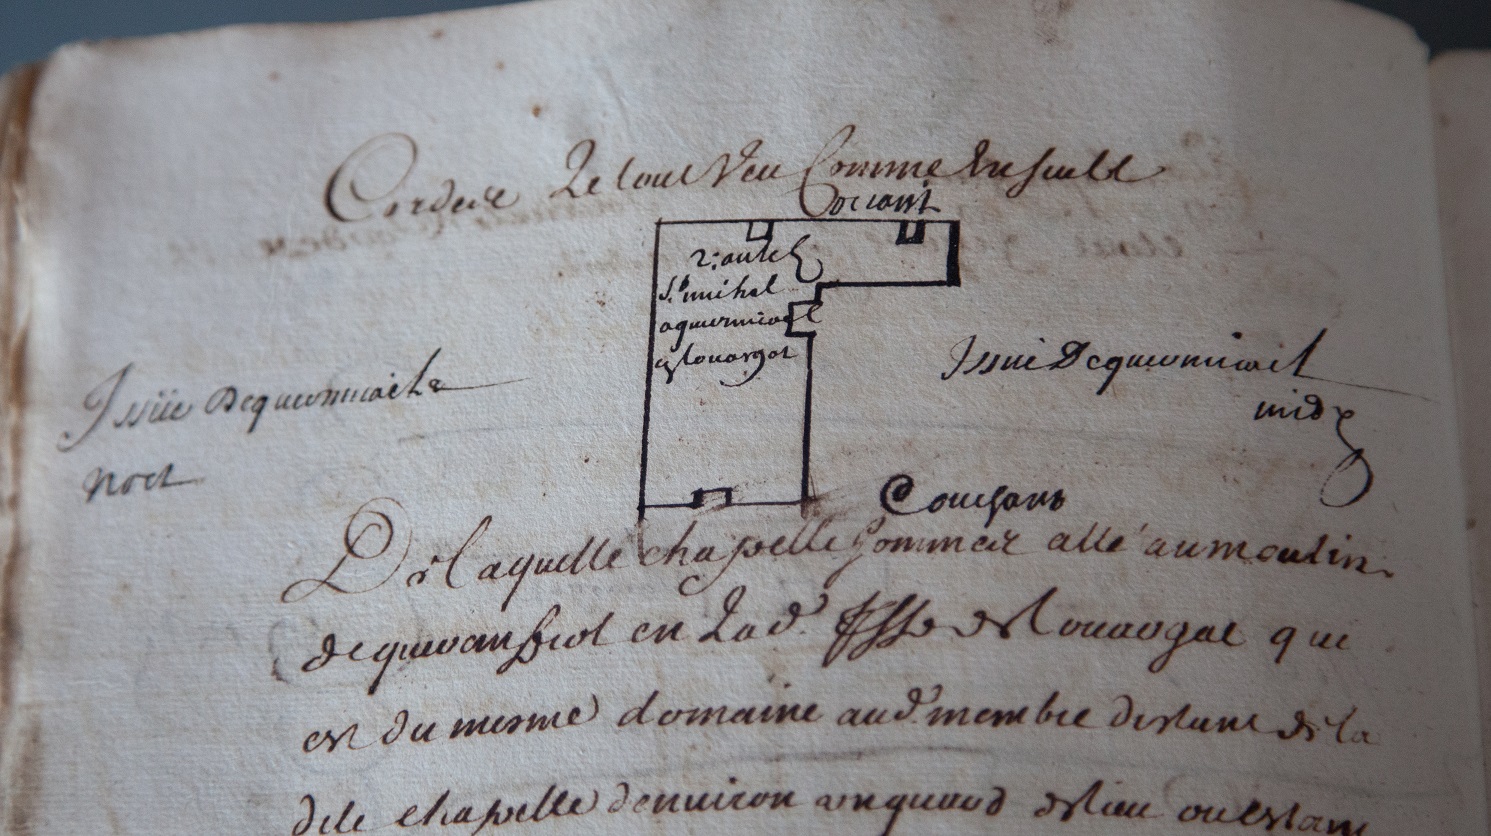 Corderie Le tout Veu Comme Ensuilt
Oriant
2: autel
St. michel
aquermicael
Louargat
Issüe Dequermicaele
nort
Issüe Dequermicael
midy
Couchans
De Laquelle chapelle sommes allé au moulin
en Lad. de Louargat qui
est du mesme domaine aud. membre distant de la
dite chapelle denuiron un quard oultans